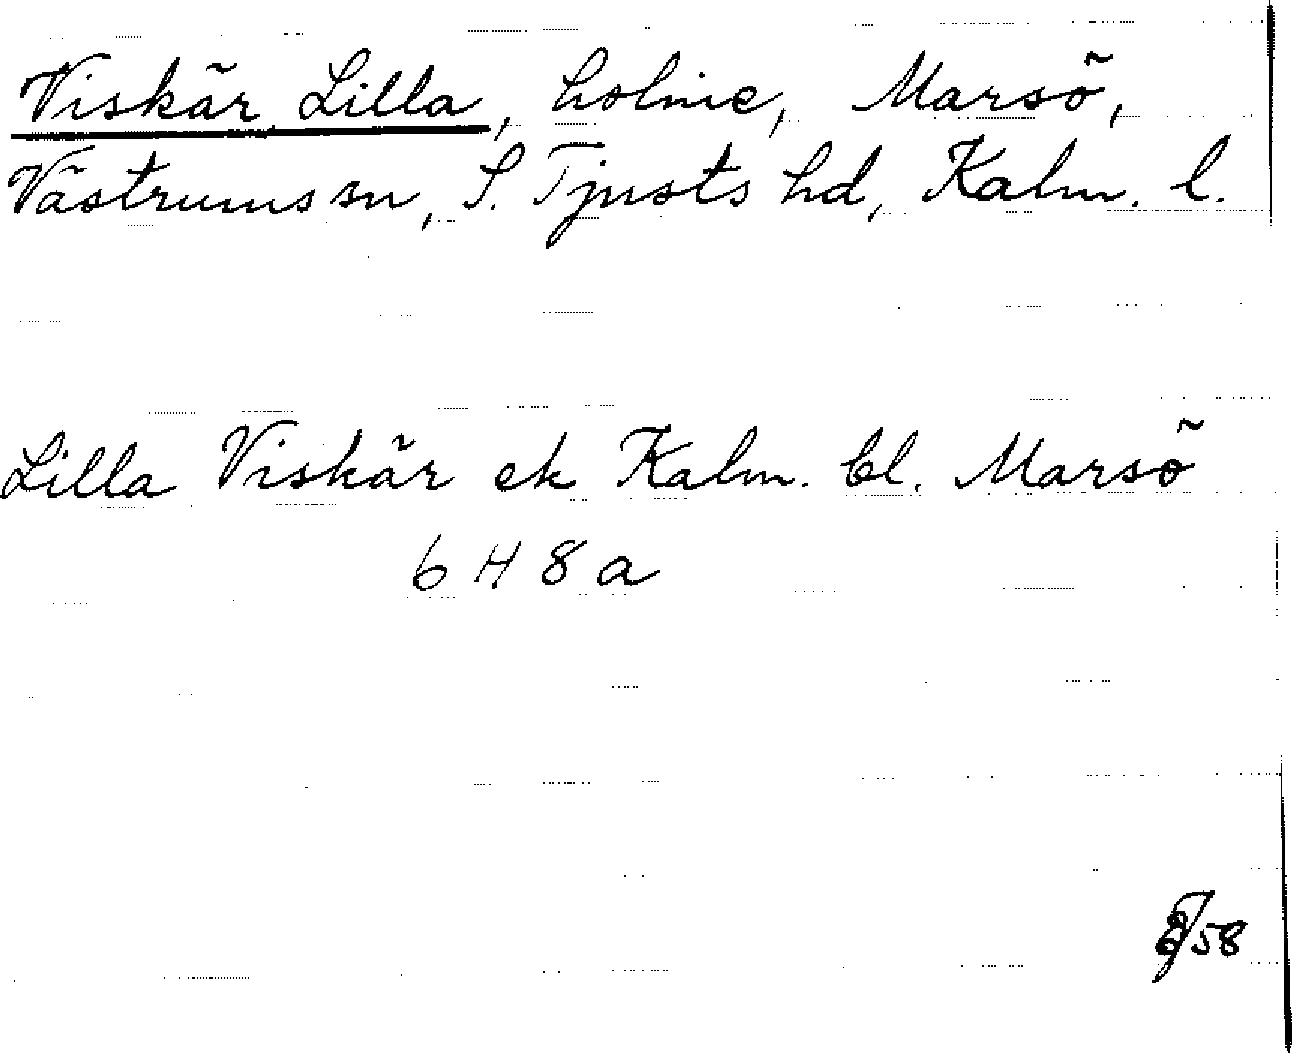 Viskär Lilla, holme, Marsö,
Västrums sn, S. Tjusts hd, Kalm. l.
Lilla Viskär ek Kalm. bl. Marsö
6 H 8 a
58